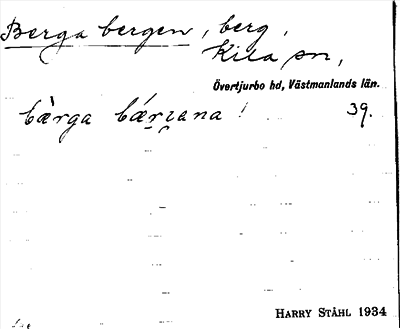 Berga bergen, berg,
Kila sn,
Övertjurbo hd, Västmanlands län.
bæ̀rga bǽrɪ̯ana! 39.
HARRY STÅHL 1934